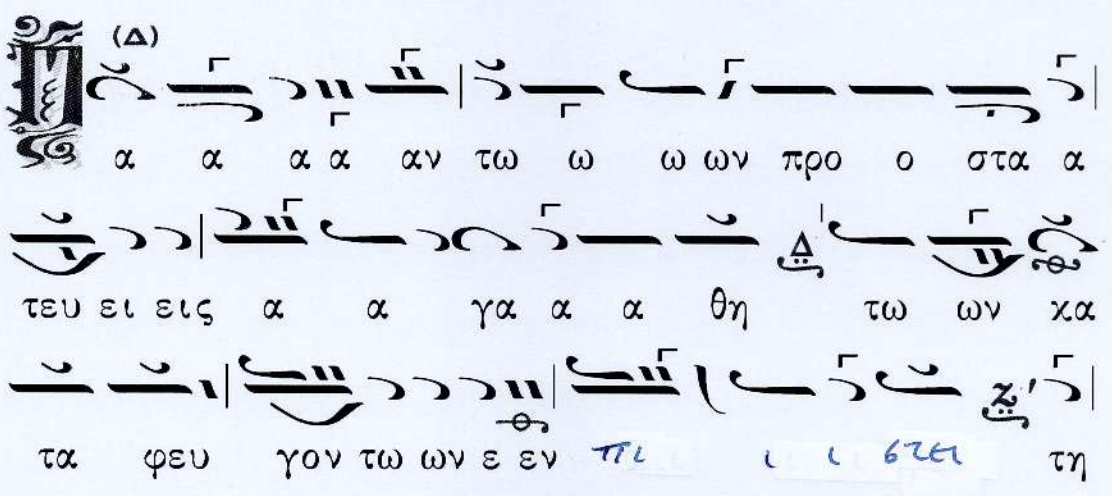 (Δ)
Πα α α α αν τω ω ω ων προ ο στα α
Δ
τευ ει εις α α γα α α θη τω ων κα
Ζ'
τα φευ γον τω ων ε εν πι ι ι στει τη